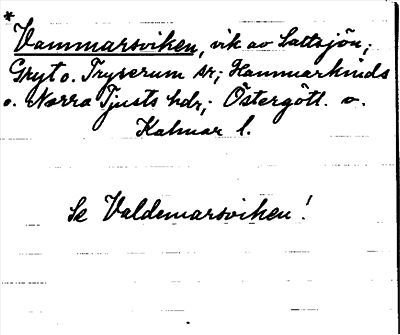 *
Vammarsviken, vik av Saltsjön;
Gryt o. Tryserum sr; Hammarkinds
o. Norra Tjusts hdr; Östergötl. o.
Kalmar l.
Se Valdemarsviken!